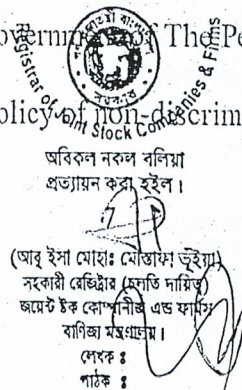 overnment of The Pe
Registrar of Joint Stock Companies & Firms
olicy of non-discrim
অবিকল নকল বলিয়া
প্রত্যায়ন করা হইল।
(আবু ইসা মোহাঃ মোস্তাফা ভূঁইয়া)
সহকারী রেজিষ্ট্রার (চলতি দায়িত্ব)
জয়েন্ট ষ্টক কোম্পানীজ এন্ড ফার্মস
বাণিজ্য মন্ত্রণালয়।
লেখক ঃ
পাঠক ঃ